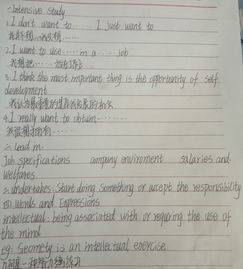 -Intensive study
1. I don't want to...... I just want to.
我并不想...我只想......
2. I want to use ...... in a ...... job
我想把......
3. I think the most important thing is the opportunity of self
development
我认为最重要的是
4. I really want to obtain........
我很想
二. lead in.
Job specifications company enviroment salaries and
welfares
2. undertakes: Start doing something or accept the responsibility
words and Expressions
intellectual: being associated with or requiring the use of
the mind
eg: Geometry is an intellectual exercise
几何是一种